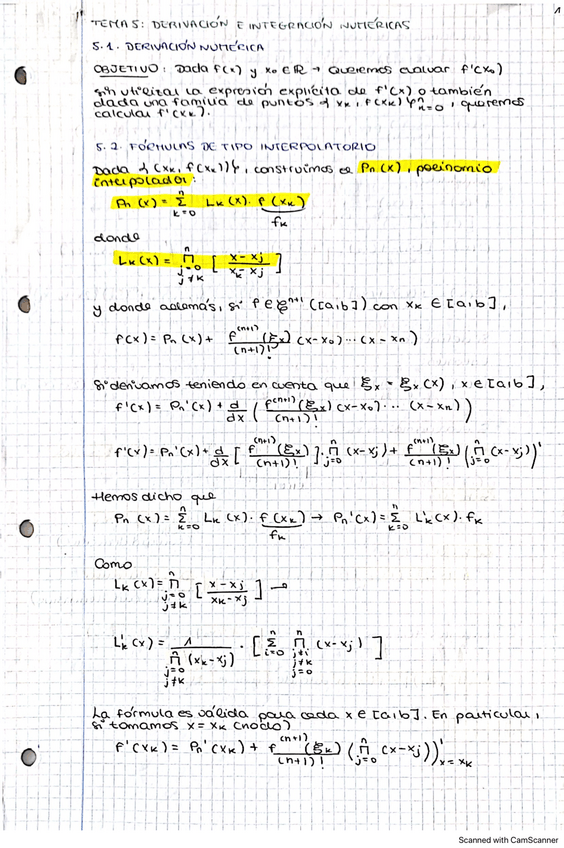 1
TEMA 5: DERIVACIÓN E INTEGRACIÓN NUMÉRICAS
5.1. DERIVACIÓN NUMÉRICA
OBJETIVO: Dada f(x) y x₀ ∈ ℝ → Queremos evaluar f'(x₀)
sin utilizar la expresión explícita de f'(x) o también
dada una familia de puntos {xₖ, f(xₖ)}ⁿₖ₌₀, queremos
calcular f'(xₖ).
5.2. FÓRMULAS DE TIPO INTERPOLATORIO
Dada {(xₖ, f(xₖ))}, construimos el Pₙ(x), polinomio
interpolador:
Pₙ(x) = Σⁿₖ₌₀ Lₖ(x) · f(xₖ)
fₖ
donde
Lₖ(x) = ∏ⁿ j=0 j≠k [ (x-xⱼ)/(xₖ-xⱼ) ]
y donde además, si f ∈ 𝒞ⁿ⁺¹([a,b]) con xₖ ∈ [a,b],
f(x) = Pₙ(x) + f⁽ⁿ⁺¹⁾(ξₓ)/(n+1)! (x-x₀)···(x-xₙ)
Si derivamos teniendo en cuenta que ξₓ = ξₓ(x), x ∈ [a,b],
f'(x) = Pₙ'(x) + d/dx ( f⁽ⁿ⁺¹⁾(ξₓ)/(n+1)! (x-x₀)···(x-xₙ) )
f'(x) = Pₙ'(x) + d/dx [ f⁽ⁿ⁺¹⁾(ξₓ)/(n+1)! ] · ∏ⁿⱼ₌₀ (x-xⱼ) + f⁽ⁿ⁺¹⁾(ξₓ)/(n+1)! ( ∏ⁿⱼ₌₀ (x-xⱼ) )'
Hemos dicho que
Pₙ(x) = Σⁿₖ₌₀ Lₖ(x) · f(xₖ) → Pₙ'(x) = Σⁿₖ₌₀ L'ₖ(x) · fₖ
fₖ
Como
Lₖ(x) = ∏ⁿ j=0 j≠k [ (x-xⱼ)/(xₖ-xⱼ) ] →
L'ₖ(x) = 1/( ∏ⁿ j=0 j≠k (xₖ-xⱼ) ) · [ Σⁿᵢ₌₀ ∏ⁿ j≠i j≠k j=0 (x-xⱼ) ]
La fórmula es válida para cada x ∈ [a,b]. En particular,
si tomamos x = xₖ (nodo)
f'(xₖ) = Pₙ'(xₖ) + f⁽ⁿ⁺¹⁾(ξₖ)/(n+1)! ( ∏ⁿⱼ₌₀ (x-xⱼ) )'ₓ₌ₓₖ
Scanned with CamScanner